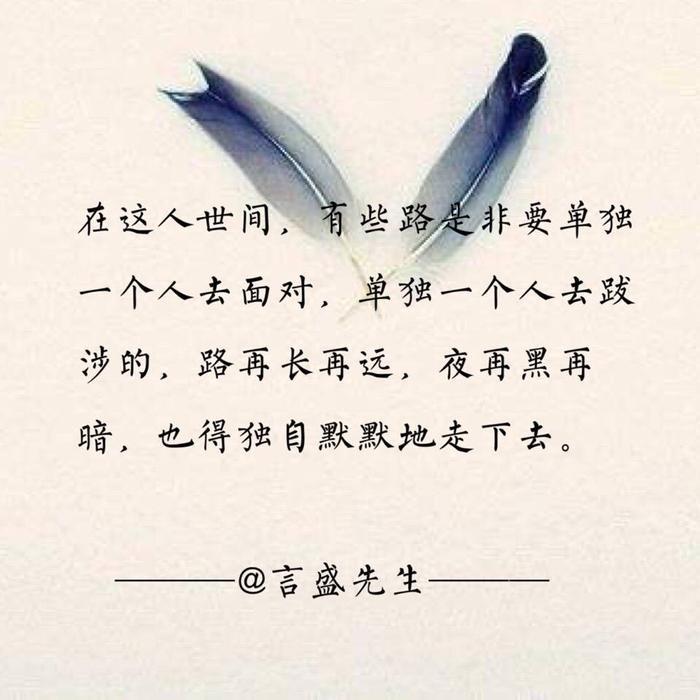 在这人世间，有些路是非要单独
一个人去面对，单独一个人去跋
涉的，路再长再远，夜再黑再
暗，也得独自默默地走下去。
———@言盛先生———